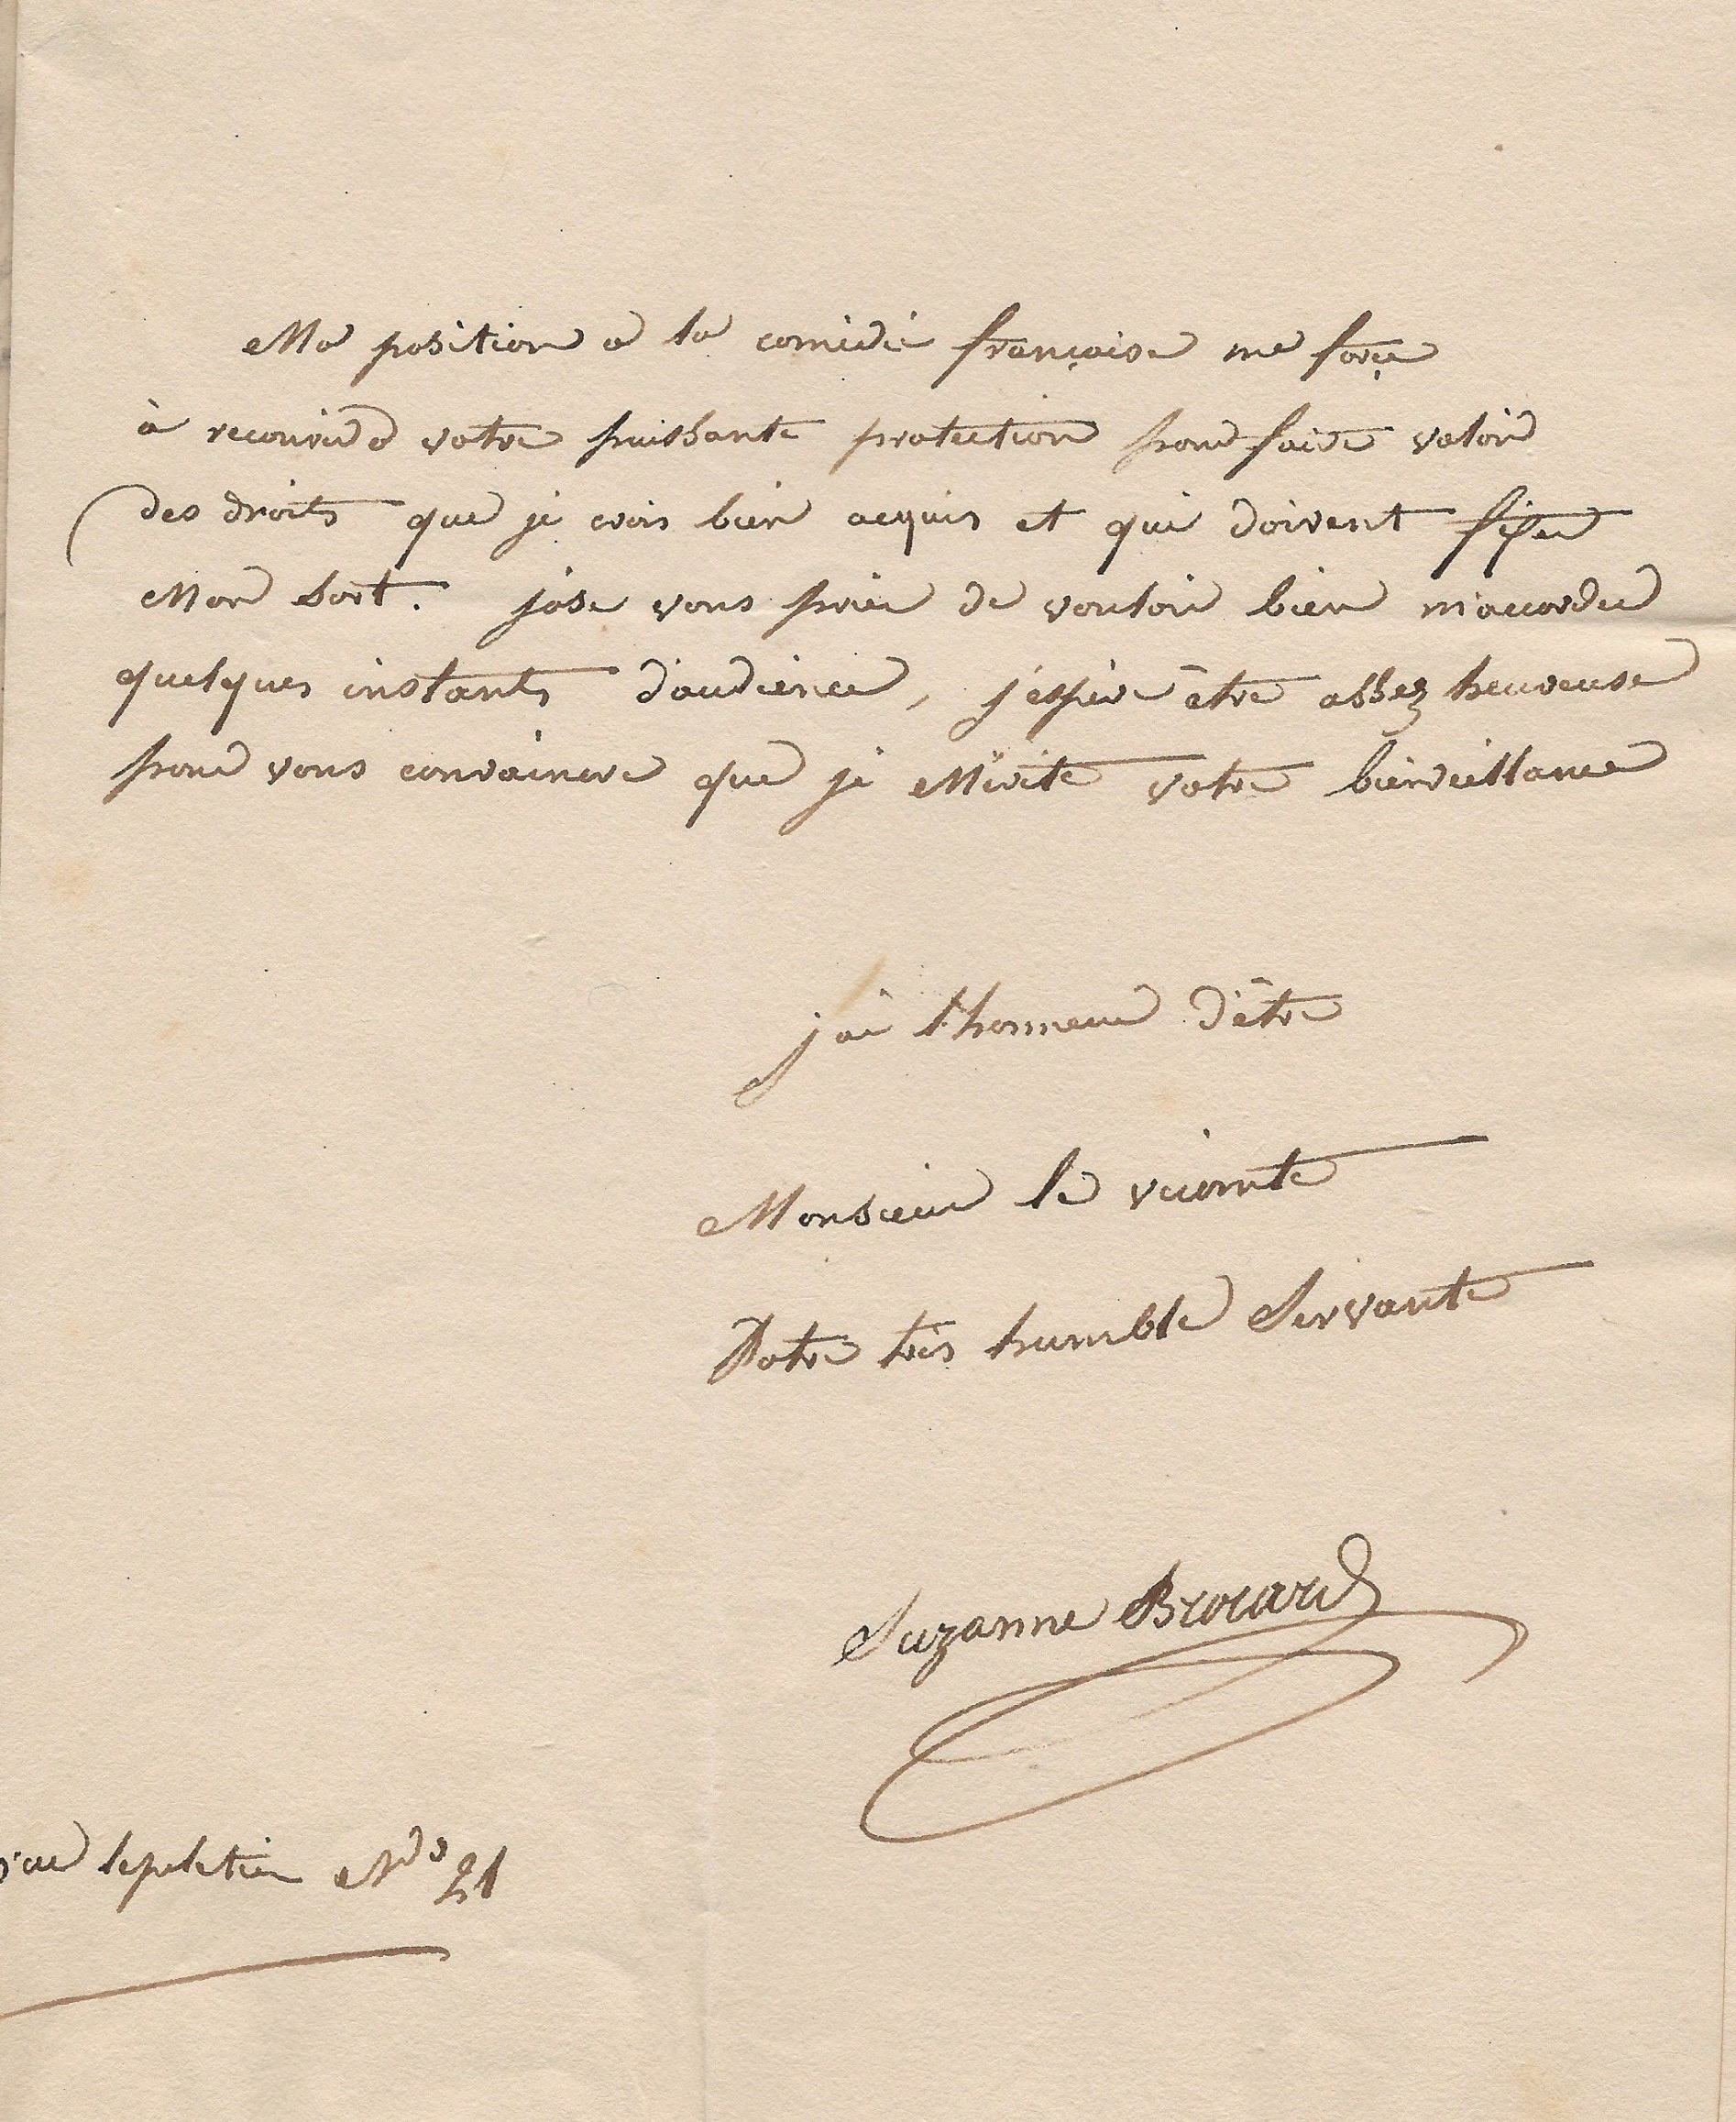 Ma position a la comédie françoise me force
à recourir a votre puissante protection pour faire valoir
des droits que je crois bien acquis et qui doivent fixer
Mon sort. j'ose vous prier de vouloir bien m'accorder
quelques instants d'audience, j'espère être assez heureuse
pour vous convaincre que je Mérite votre bienveillance
j'ai l'honneur d'être
Monsieur le vicomte
Votre très humble Servante
Suzanne Brocard
rue lepeletier No 21